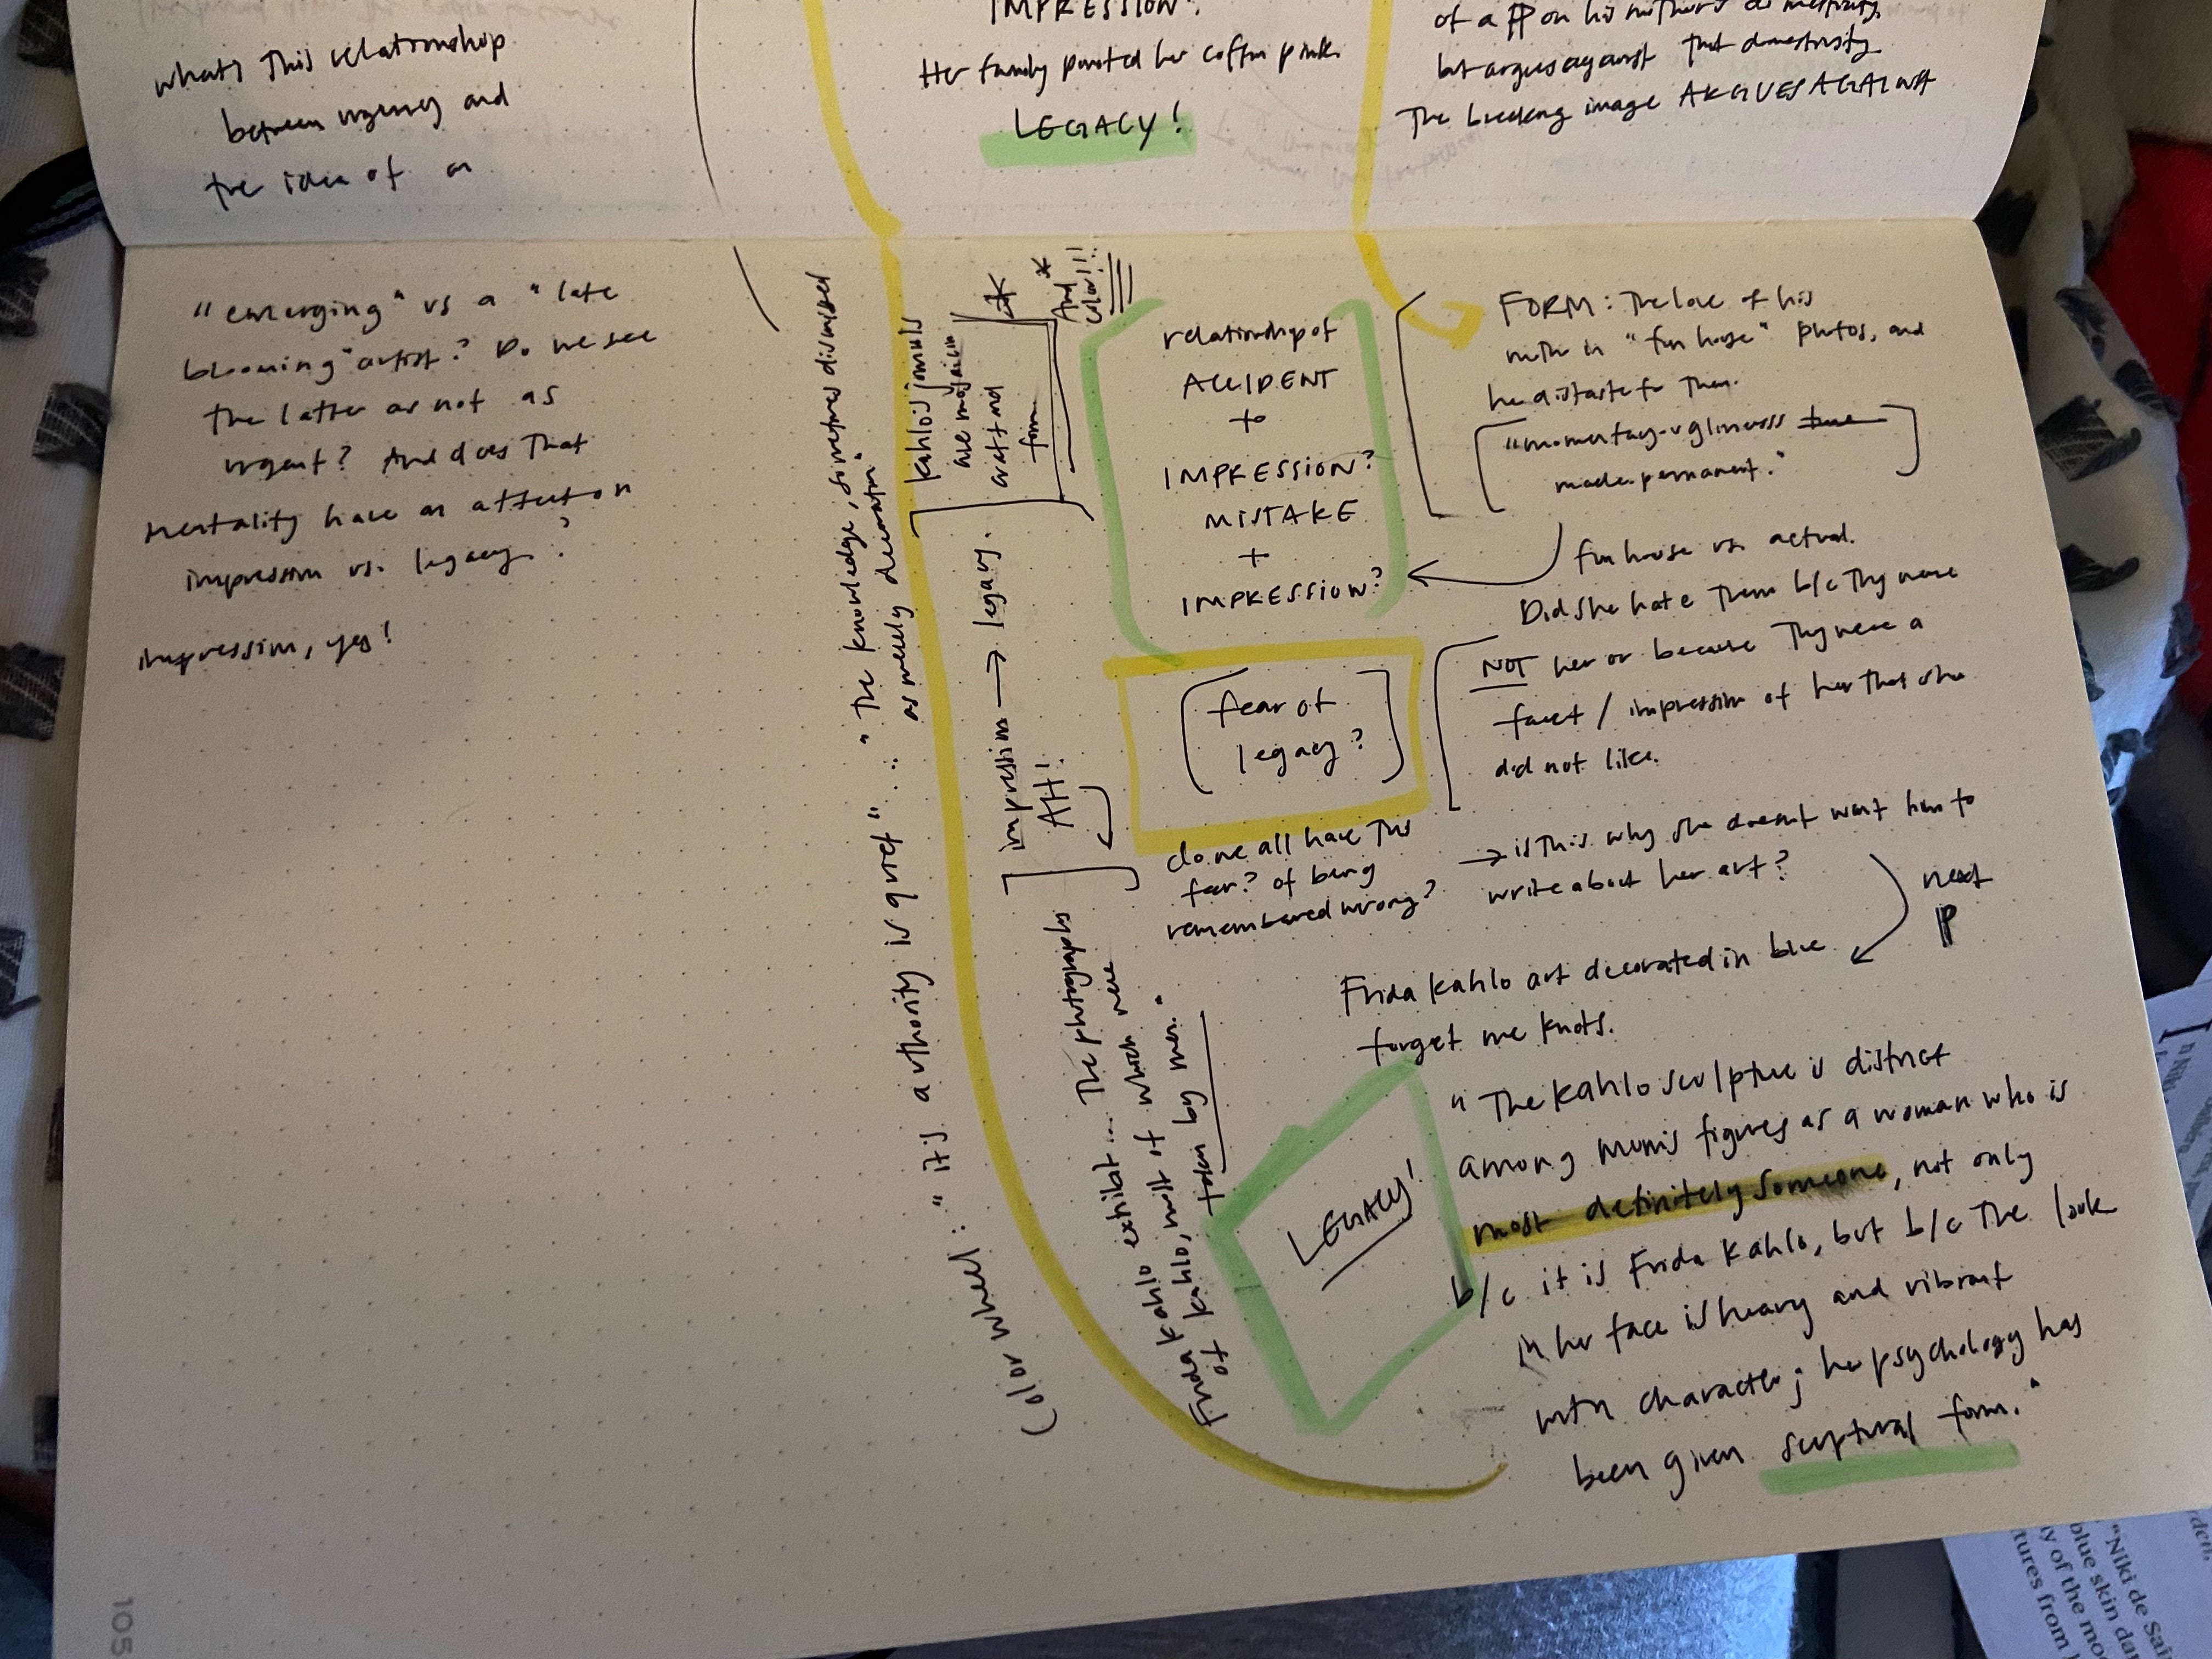 what's this relationship
between urgency and
the idea of an
"emerging" vs a "late
blooming" artist? Do we see
the latter as not as
urgent? And does that
mentality have an affect on
impression vs. legacy?
impression, yes!
IMPRESSION.
Her family painted her coffin pink.
LEGACY!
of a PP on his mother's domesticity,
but argues against that domesticity
The breeding image ARGUES AGAINST
Color wheel: "its authority is grief" .. "the knowledge, sometimes dismissed
as merely decorative"
Kahlo's journals
are
craft and
form
And
color!!!
impression → legacy.
AH!
Frida Kahlo exhibit... The photographs
of Kahlo, most of which were
taken by men."
relationship of
ACCIDENT
+
IMPRESSION?
MISTAKE
+
IMPRESSION?
(fear of
legacy?)
do we all have this
fear? of being
remembered wrong?
FORM: The love of his
mother in "fun house" photos, and
her distaste for them.
"momentary ugliness true
made permanent."
fun house vs. actual.
Did she hate them b/c they were
NOT her or because they were a
facet / impression of her that she
did not like.
→ is this why she doesn't want him to
write about her art?
next
P
Frida Kahlo art decorated in blue
forget me knots.
LEGACY!
"The Kahlo sculpture is distinct
among mom's figures as a woman who is
most definitely someone, not only
b/c it is Frida Kahlo, but b/c the look
in her face is heavy and vibrant
with character; her psychology has
been given sculptural form."
105
"Niki de Sai
blue skin da
y of the mo
tures from